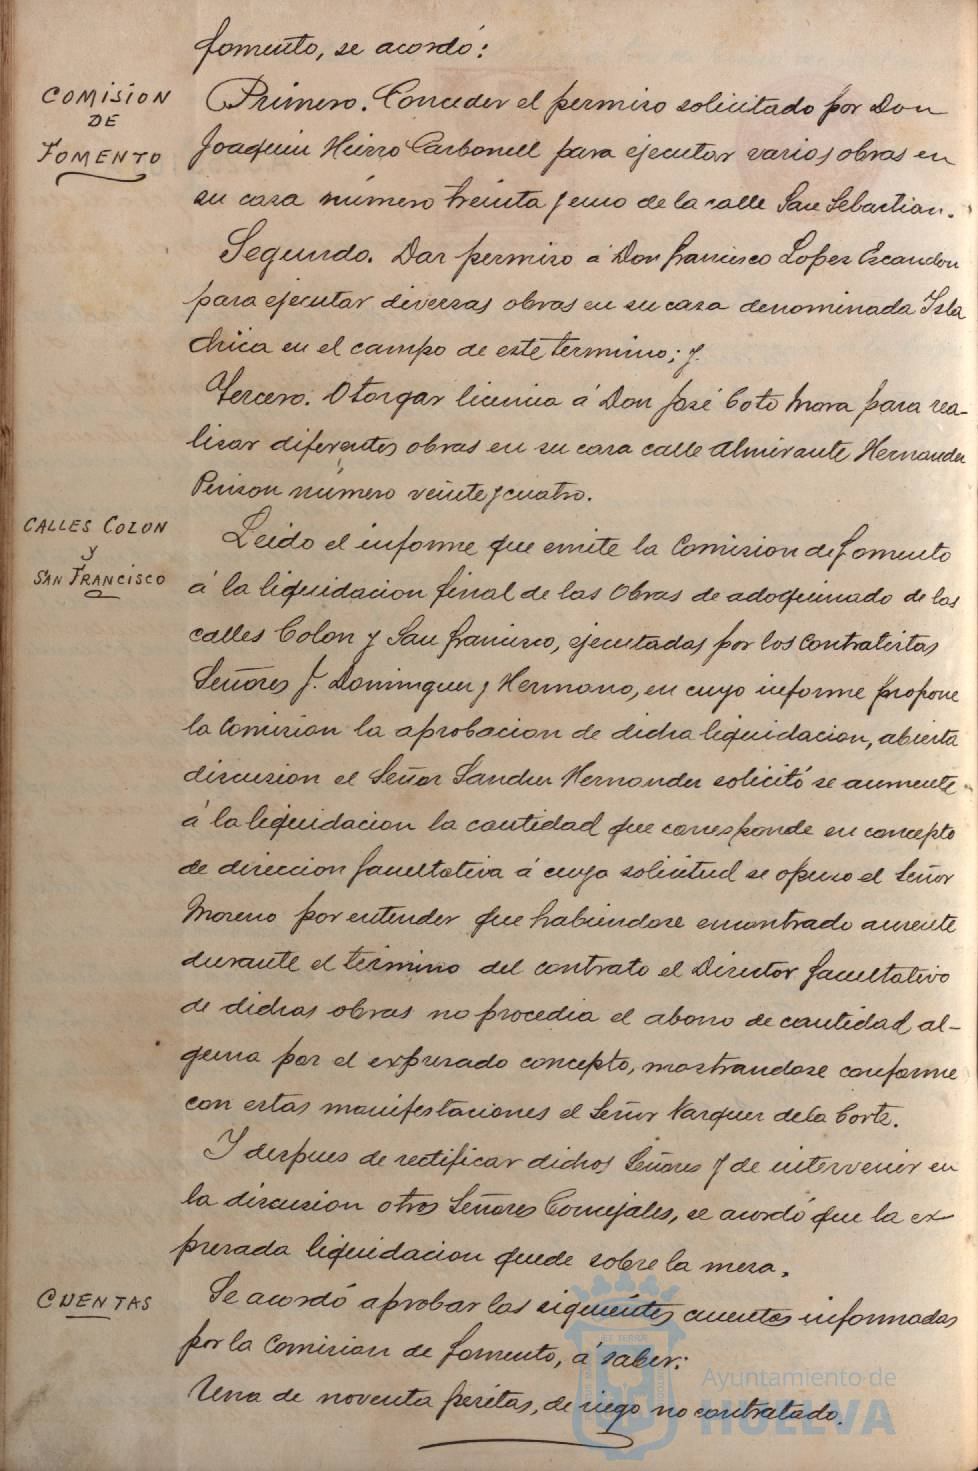 fomento, se acordó:
COMISION
DE
FOMENTO
Primero. Conceder el permiso solicitado por Don
Joaquin Hierro Carbonell para ejecutar varios obras en
su casa número treinta y uno de la calle San Sebastian.
Segundo. Dar permiso á Don Francisco Lopez Escandon
para ejecutar diversas obras en su casa denominada Isla
Chica en el campo de este termino; y.
Tercero. Otorgar licencia á Don José Coto Mora para rea-
lisar diferentes obras en su casa calle Almirante Hernandez
Pinson número veinte y cuatro.
CALLES COLON
Y
SAN FRANCISCO
Leido el informe que emite la Comision de fomento
á la liquidacion final de las Obras de adoquinado de las
calles Colon y San Francisco, ejecutadas por los Contratistas
Señores J. Dominguez y Hermano, en cuyo informe propone
la Comision la aprobacion de dicha liquidacion, abierta
discusion el Señor Sanchez Hernandez solicitó se aumente
á la liquidacion la cantidad que corresponde en concepto
de direccion facultativa á cuya solicitud se opuso el Señor
Moreno por entender que habiendose encontrado ausente
durante el termino del contrato el Director facultativo
de dichas obras no procedia el abono de cantidad al-
guna por el expresado concepto, mostrandose conforme
con estas manifestaciones el Señor Vazquez de la Corte.
Y despues de rectificar dichos Señores y de intervenir en
la discusion otros Señores Concejales, se acordó que la ex-
presada liquidacion quede sobre la mesa.
CUENTAS
Se acordó aprobar las siguientes cuentas informadas
por la Comision de fomento, á saber:
Una de noventa pesetas, de riego no contratado.
Ayuntamiento de
HUELVA